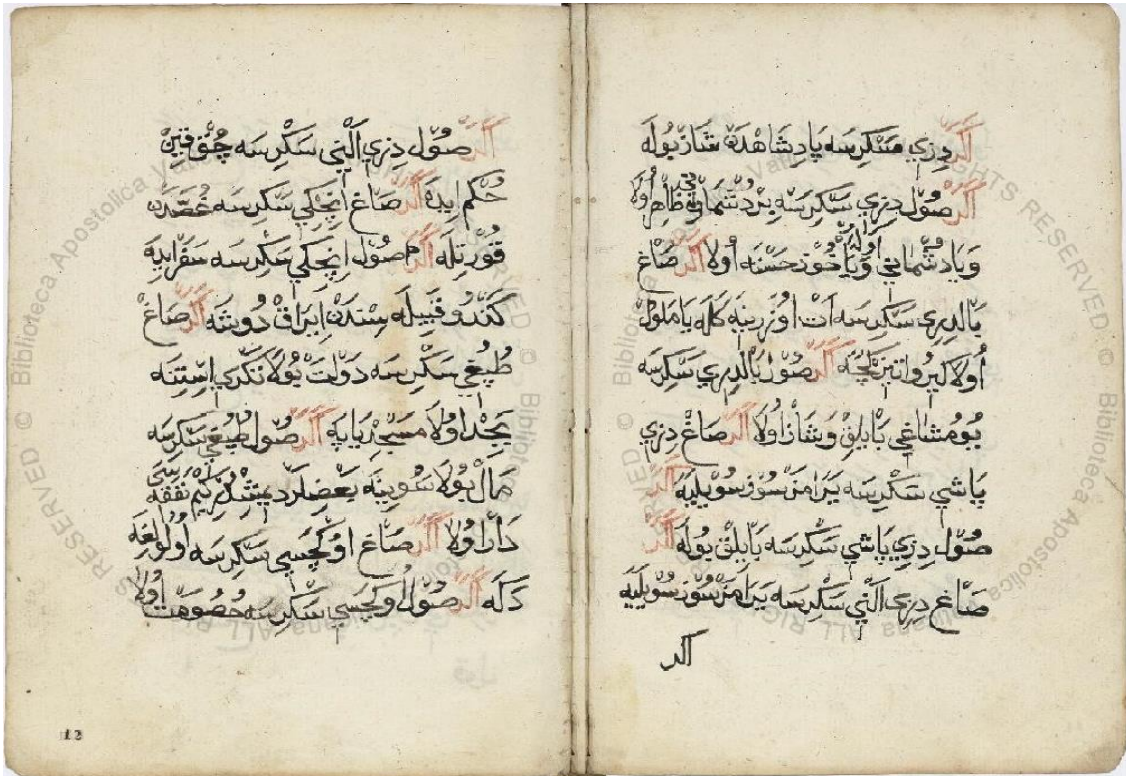 اَكَرْ دِزِي سَكِرِسَه پَادِشَاهْدَنْ شَازْ بُولَه
اَكَرْ صُوْل دِزِي سَكِرِسَه بِرْ دُشْمَانِي ظَاهِرْ اُولَا
وَيَا دُشْمَانِي اُولَه وَيَا خُوْدْ خَسْتَه اُولَا اَكَرْ صَاغْ
بَالْدِرِي سَكِرِسَه اَتْ اُوزَرِينَه كَلَه يَا مَلُولْ
اُولَا لِيرْوَا تِيزْ كَچَه اَكَرْ صُوْل بَالْدِرِي سَكِرِسَه
يُومُشَاغِي بَايْلِقْ وَشَازْ اُولَا اَكَرْ صَاغْ دِزِي
بَاشِي سَكِرِسَه يَرَامَزْ سُوزْ سُويْلَيَه اَكَرْ
صُوْل دِزِي بَاشِي سَكِرِسَه بَايْلِقْ بُولَه اَكَرْ
صَاغْ دِزِي اَلْتِي سَكِرِسَه يَرَامَزْ سُوزْ سُويْلَيَه
اكر
اَكَرْ صُوْل دِزِي اَلْتِي سَكِرِسَه چُوْق
حُكْم اِيدَه اَكَرْ صَاغْ اِنْجِكِي سَكِرِسَه غُصَّهدَنْ
قُورْتِلَه اَكَرْ صُوْل اِنْجِكِي سَكِرِسَه سَفَر اِيدَه
كَنْدُو قَبِيلَه سِنْدَنْ اِيرَاقْ دُوشَه اَكَرْ صَاغْ
طُپُغِي سَكِرِسَه دَوْلَتْ بُولَا تَكْرِي اِسْتِنَه
يَخْد اُولَا مَسْجِدْ يَاپَه اَكَرْ صُوْل طُپُغِي سَكِرِسَه
مَالْ بُولَا سُوِينَه بَعْضِلَرْ دِيمِشْلَرْ كِيمْ نَفَقَه سِي
دَارْ اُولَا اَكَرْ صَاغْ اُوكْچَسِي سَكِرِسَه اُولُولِغَه
دَكَه اَكَرْ صُوْل اُوكْچَسِي سَكِرِسَه خُصُومَتْ اُولَا
12
© Biblioteca Apostolica Vaticana ALL RIGHTS RESERVED